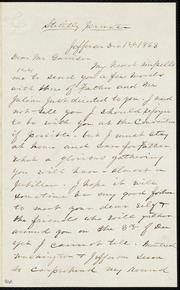 Strictly Private
Jefferson Dec 1st 1863
Dear Mr Garrison
My heart impells
me to send you a few words
with those of Father and Mr
Julian just directed to you. I need
not tell you I should rejoice
to be with you at the Convention
if possible. but I must stay
at home and care for Father
What a glorious gathering
you will have - almost a
Jubilee. I hope it will
sometime be my good fortune
to meet your dear self &
the friends who will gather
around you on the 3rd of Dec
yet I cannot tell.
Washington & Jefferson seem
to comprehend my